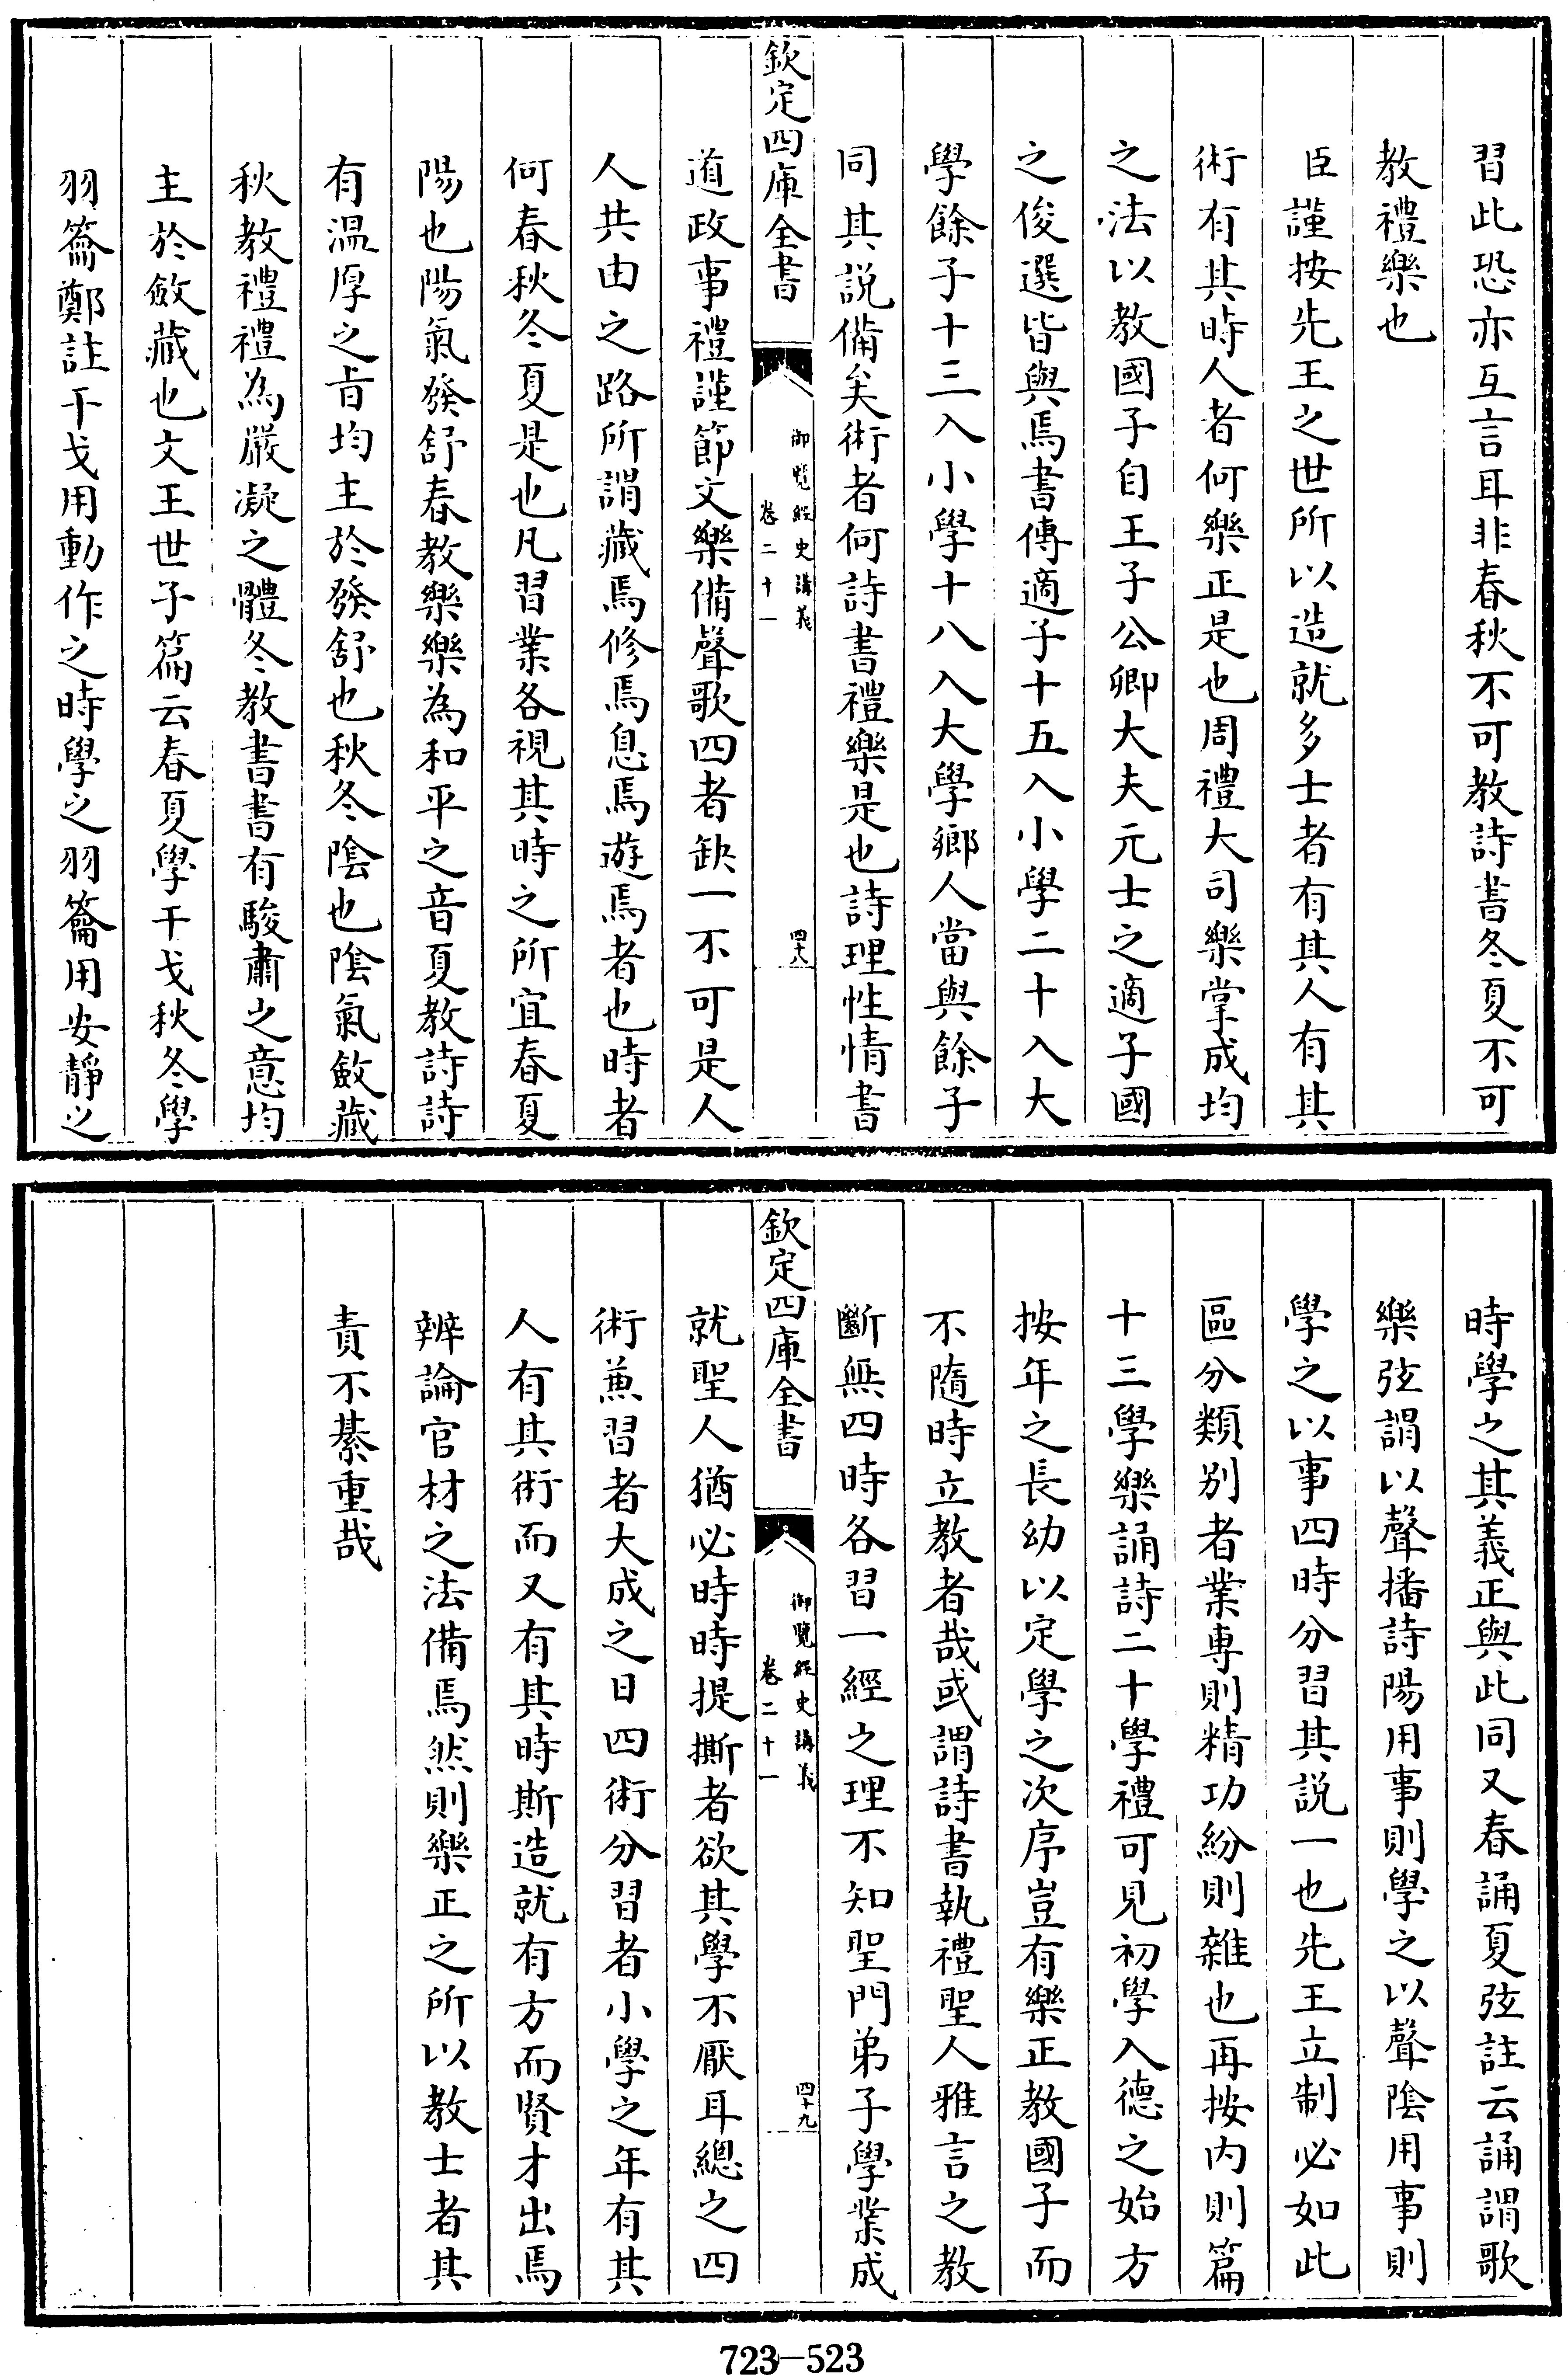 習此恐亦互言耳非春秋不可教詩書冬夏不可
教禮樂也
臣謹按先王之世所以造就多士者有其人有其
術有其時人者何樂正是也周禮大司樂掌成均
之法以教國子自王子公卿大夫元士之適子國
之俊選皆與焉書傳適子十五入小學二十入大
學餘子十三入小學十八入大學鄉人當與餘子
同其説備矣術者何詩書禮樂是也詩理性情書
欽定四庫全書
御覽經史講義
卷二十一
四十八
道政事禮謹節文樂備聲歌四者缺一不可是人
人共由之路所謂藏焉修焉息焉遊焉者也時者
何春秋冬夏是也凡習業各視其時之所宜春夏
陽也陽氣發舒春教樂樂為和平之音夏教詩詩
有温厚之㫖均主於發舒也秋冬陰也陰氣斂藏
秋教禮禮為嚴凝之體冬教書書有駿肅之意均
主於斂藏也文王世子篇云春夏學干戈秋冬學
羽籥鄭註干戈用動作之時學之羽籥用安靜之
時學之其義正與此同又春誦夏弦註云誦謂歌
樂弦謂以聲播詩陽用事則學之以聲陰用事則
學之以事四時分習其説一也先王立制必如此
區分類别者業專則精功紛則雜也再按内則篇
十三學樂誦詩二十學禮可見初學入德之始方
按年之長幼以定學之次序豈有樂正教國子而
不隨時立教者哉或謂詩書執禮聖人雅言之教
斷無四時各習一經之理不知聖門弟子學業成
欽定四庫全書
御覽經史講義
卷二十一
四十九
就聖人猶必時時提撕者欲其學不厭耳總之四
術兼習者大成之日四術分習者小學之年有其
人有其術而又有其時斯造就有方而賢才出焉
辨論官材之法備焉然則樂正之所以教士者其
責不綦重哉
723—523